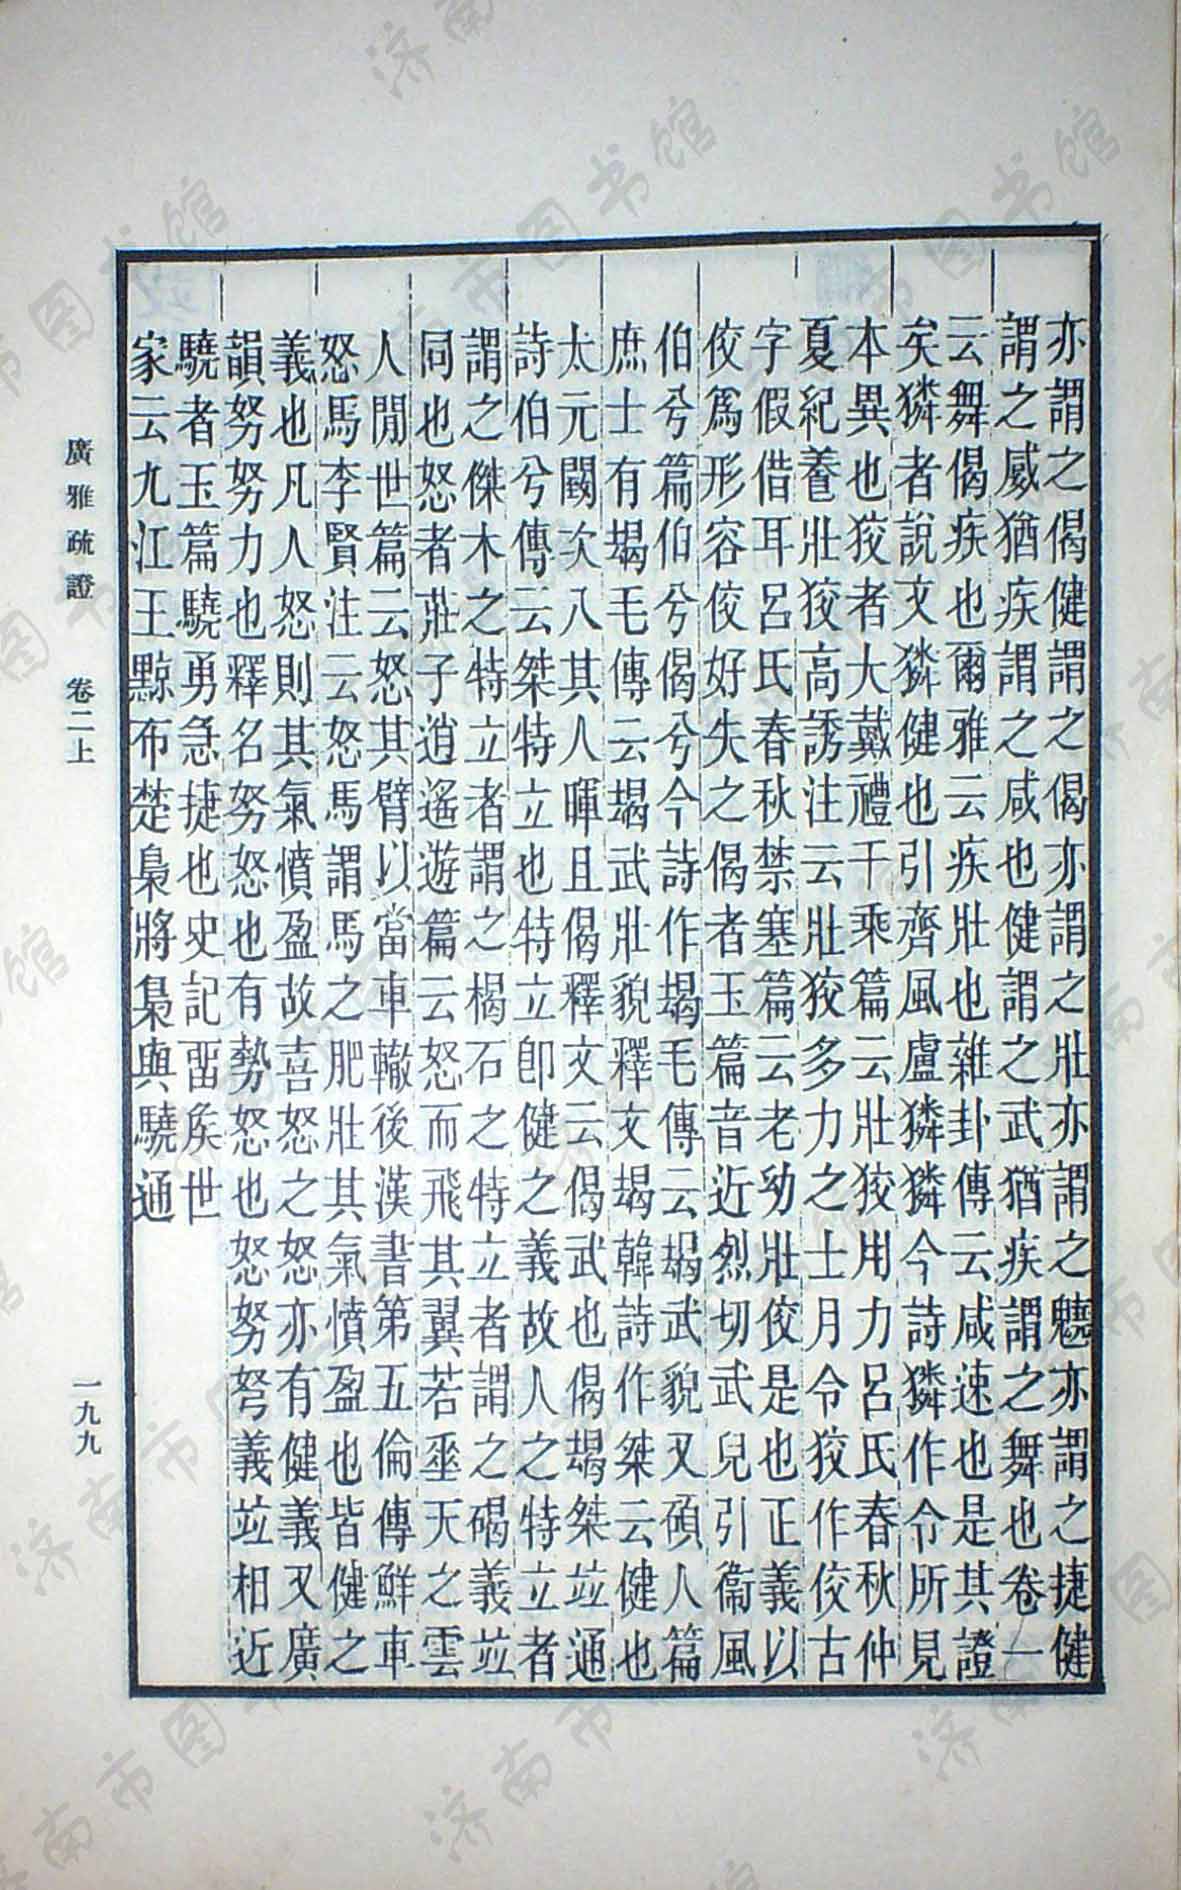 亦謂之偈健謂之偈亦謂之壯亦謂之魕亦謂之捷健
謂之威猶疾謂之咸也健謂之武猶疾謂之舞也卷一
云舞偈疾也爾雅云疾壯也雜卦傳云咸速也是其證
矣獜者說文獜健也引齊風盧獜獜今詩獜作令所見
本異也狡者大戴禮千乘篇云壯狡用力呂氏春秋仲
夏紀養壯狡高誘注云壯狡多力之士月令狡作佼古
字假借耳呂氏春秋禁塞篇云老幼壯佼是也正義以
佼爲形容佼好失之偈者玉篇音近烈切武兒引衞風
伯兮篇伯兮偈兮今詩作朅毛傳云朅武貌又碩人篇
庶士有朅毛傳云朅武壯貌釋文朅韓詩作桀云健也
太元闞次八其人暉且偈釋文云偈武也偈朅桀竝通
詩伯兮傳云桀特立也特立卽健之義故人之特立者
謂之傑木之特立者謂之楬石之特立者謂之碣義竝
同也怒者莊子逍遙遊篇云怒而飛其翼若垂天之雲
人閒世篇云怒其臂以當車轍後漢書第五倫傳鮮車
怒馬李賢注云怒馬謂馬之肥壯其氣憤盈也皆健之
義也凡人怒則其氣憤盈故喜怒之怒亦有健義又廣
韻努努力也釋名努怒也有勢怒也怒努弩義竝相近
驍者玉篇驍勇急捷也史記畱侯世
家云九江王黥布楚梟將梟與驍通
廣雅疏證　卷二上
一九九
濟南市图书馆